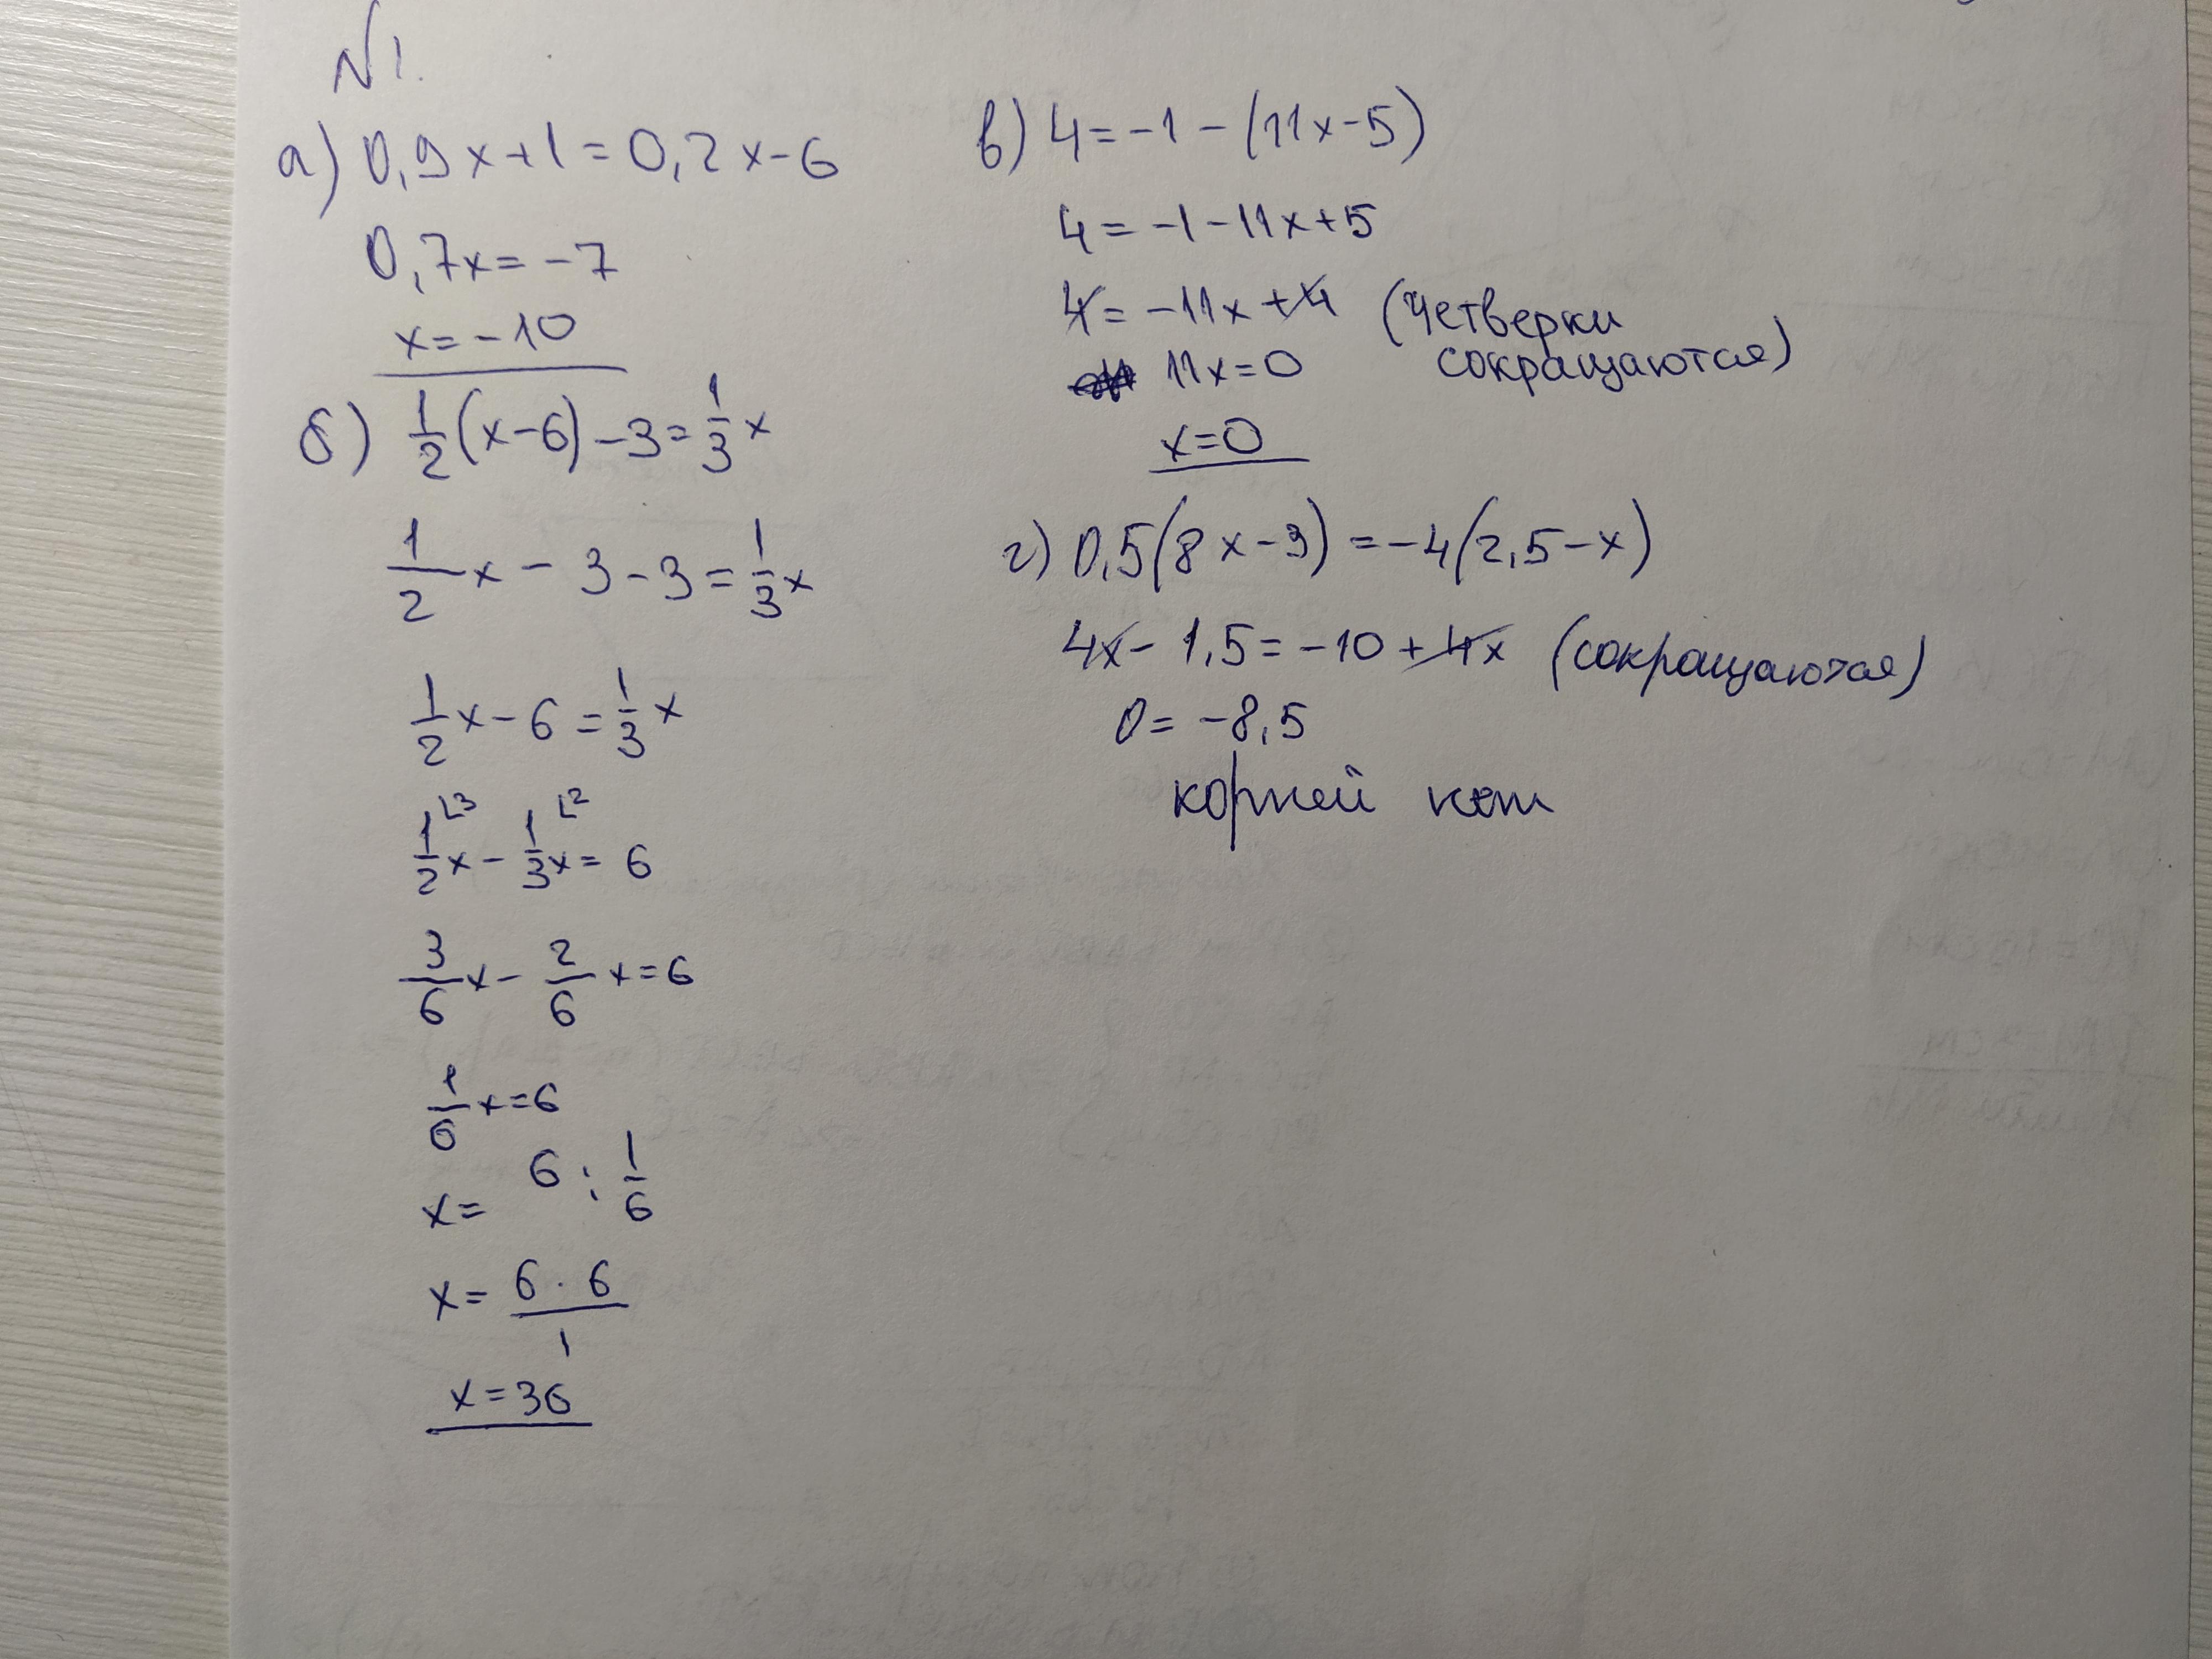 №1.
а) 0,9x+1=0,2x-6
0,7x=-7
x=-10
б) 1/2(x-6)-3=1/3x
1/2x-3-3=1/3x
1/2x-6=1/3x
1/2x-1/3x=6
3/6x-2/6x=6
1/6x=6
x=6:1/6
x=6·6/1
x=36
в) 4=-1-(11x-5)
4=-1-11x+5
4=-11x+4 (четверки
сокращаются)
11x=0
x=0
г) 0,5(8x-3)=-4(2,5-x)
4x-1,5=-10+4x (сокращаются)
0=-8,5
корней нет